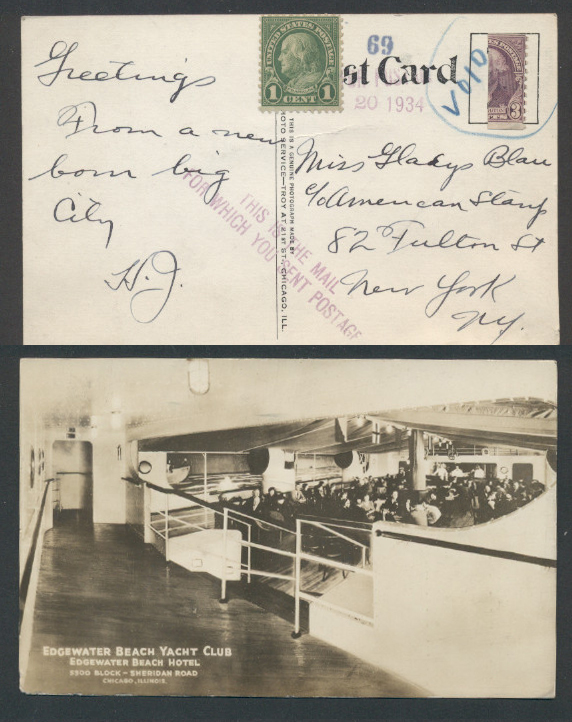 UNITED STATES POSTAGE
1 CENT 1
69
st Card
20 1934
VOID
3
Greetings
From a new
born big
City
H.J.
Miss Gladys Blau
c/o American Stamp
82 Fulton St
New York
NY.
THIS IS THE MAIL
FOR WHICH YOU SENT POSTAGE
THIS IS A GENUINE PHOTOGRAPH MADE BY
PHOTO SERVICE—TROY AT 21ST ST., CHICAGO, ILL.
EDGEWATER BEACH YACHT CLUB
EDGEWATER BEACH HOTEL
5300 BLOCK – SHERIDAN ROAD
CHICAGO, ILLINOIS.